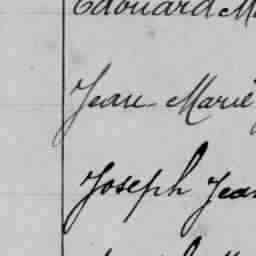 Edouard M
Jean Marie
Joseph Jean